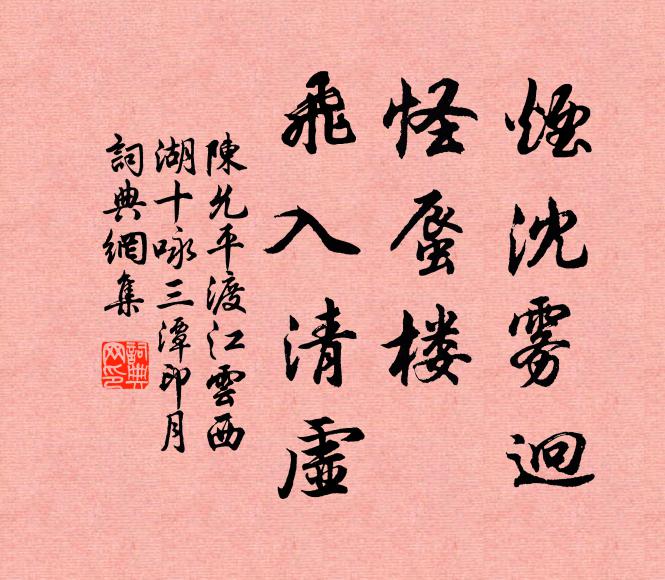 煙沈雾迥
怪蜃楼
飛入清虛
陳允平渡江雲西
湖十咏三潭印月
詞典網集
詞典
网印